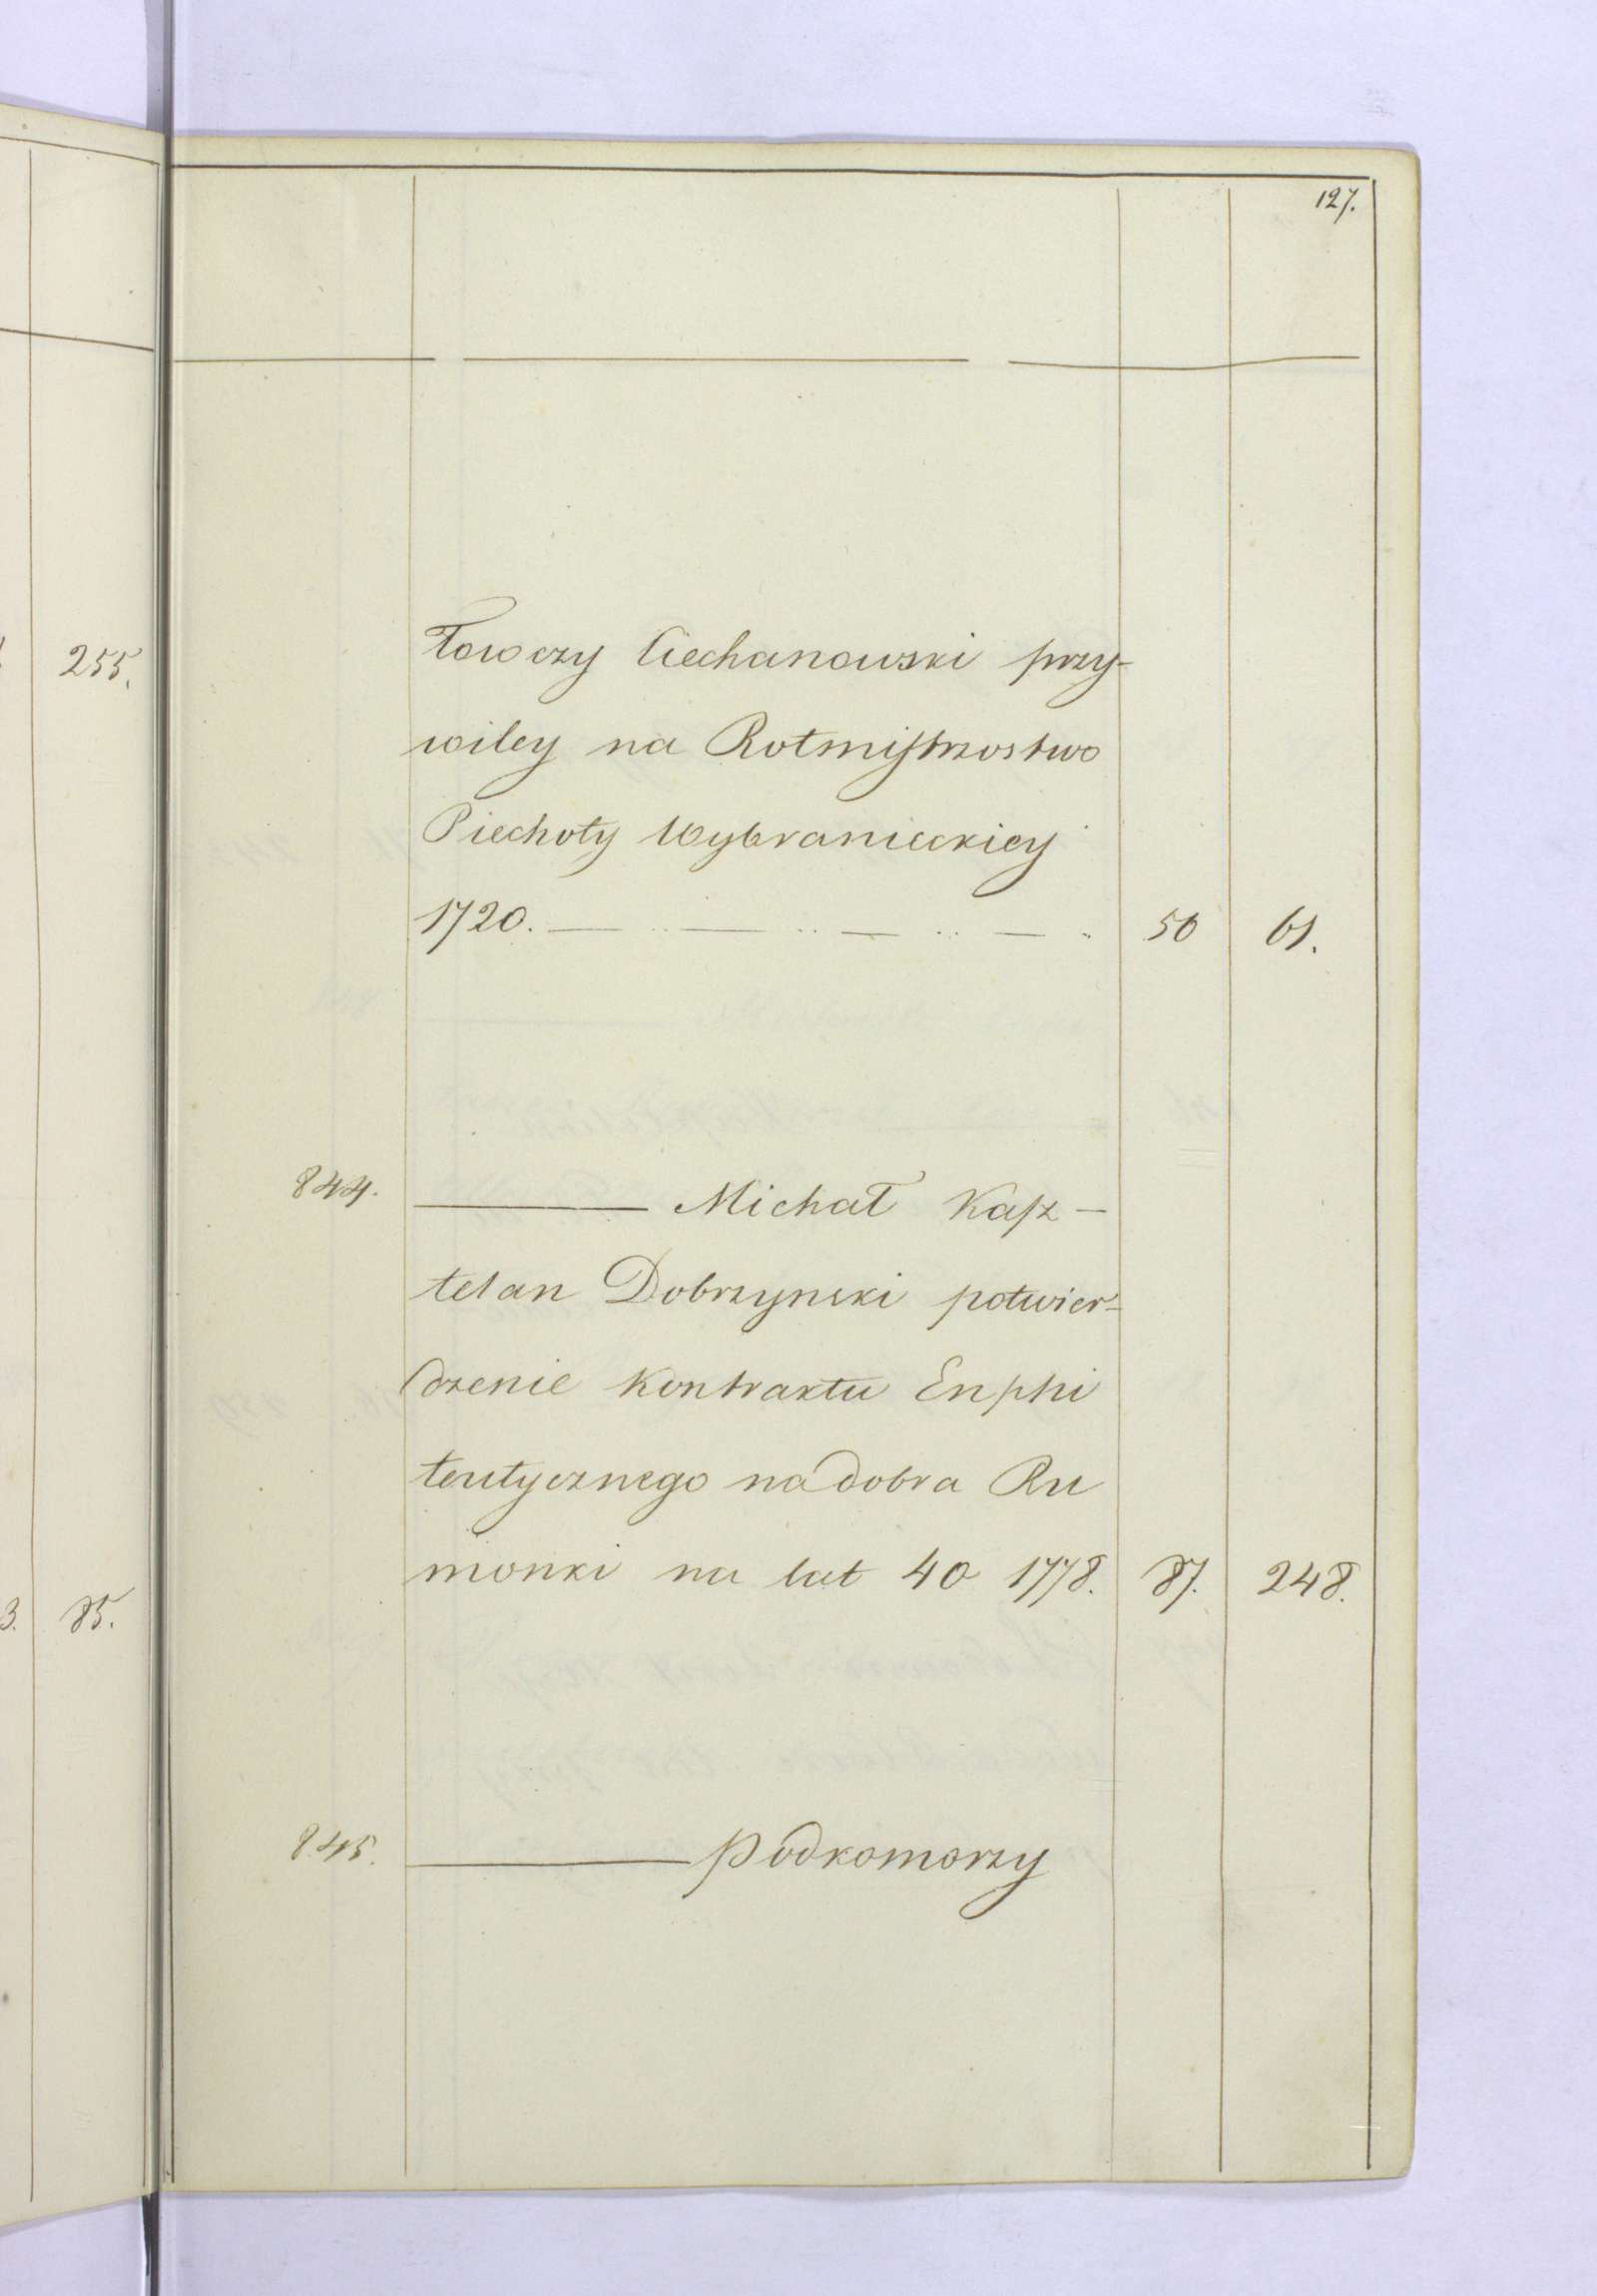 127.
255.
Łowczy Ciechanowski przy-
wiley na Rotmistrzostwo
Piechoty Wybranieckiey
1720. — .. — .. — .. — .. 50 61.
844. ——— Michał Kasz-
telan Dobrzynski potwier-
dzenie Kontraktu Enphi
teutycznego na dobra Ru
monki na lat 40 1778. 87. 248.
3. 85.
845. ——— Podkomorzy